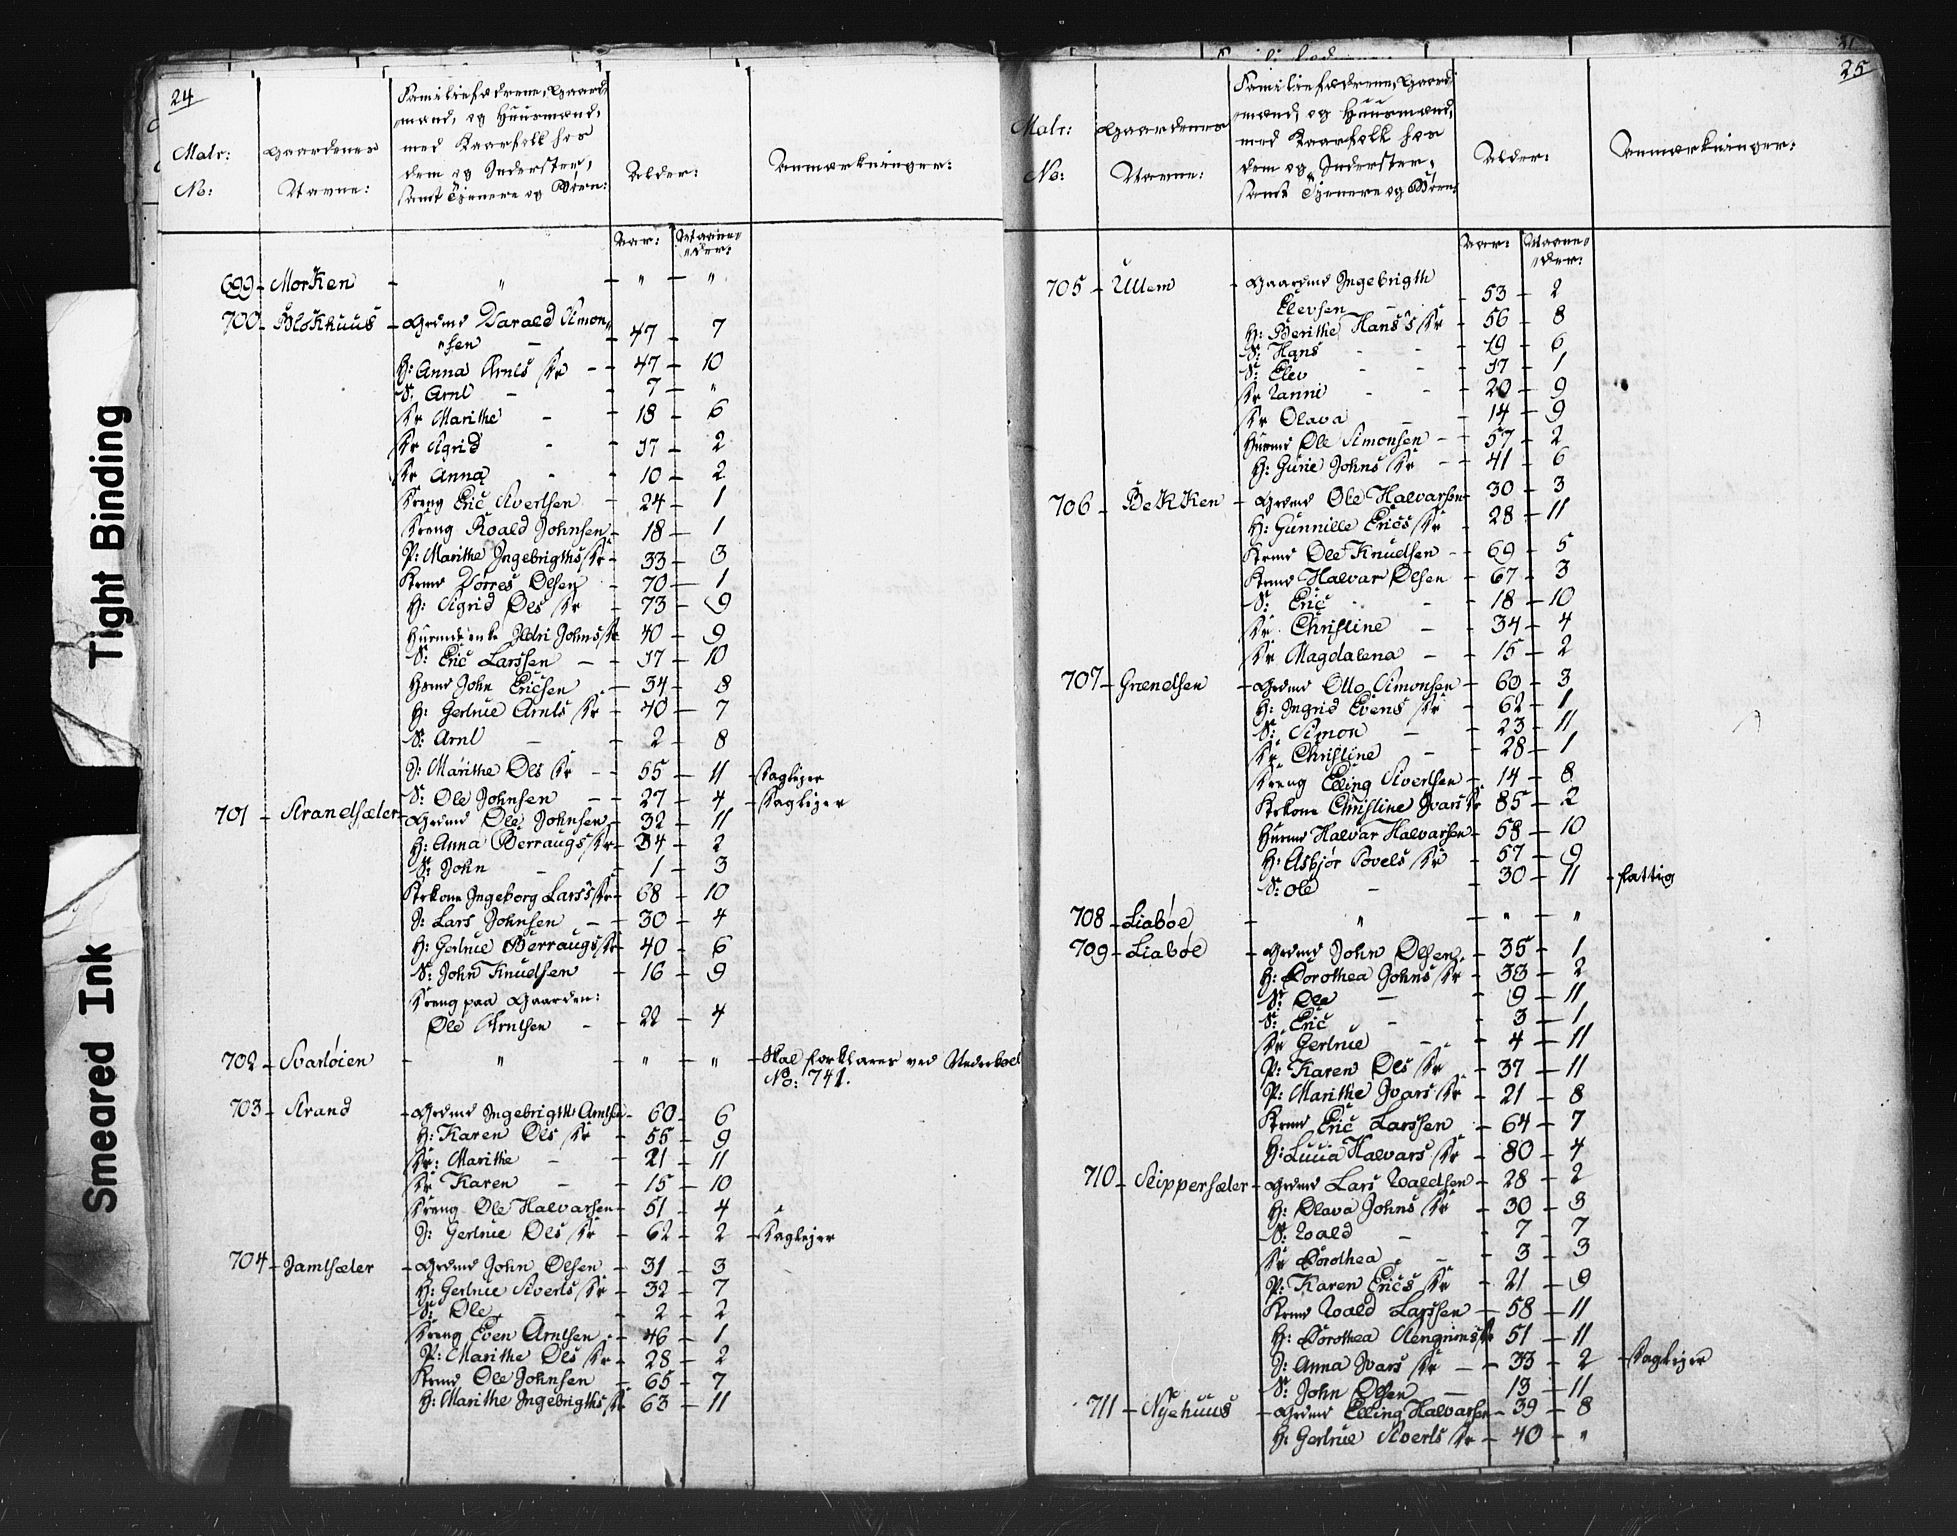 Tight Binding
Smeared Ink
24
Matr: No:
Gaardenes Navne:
Familiefædrene, Gaard-
mænd, og Huusmænd,
med Kaarfolk hos
dem og Inderster,
samt Tjenere og Børn:
Alder:
Anmærkninger:
Aar: Maane-
der:
699 - Morken - " - " - "
700 - Blokhuus - Grdmd Harald Simon-
sen - 47 - 7
H: Anna Arnts Dr - 47 - 10
S: Arnt - 7 - "
Dr Marithe - 18 - 6
Dr Sigrid - 17 - 2
Dr Anna - 10 - 2
Dreng Eric Sivertsen - 24 - 1
Dreng Roald Johnsen - 18 - 1
P: Marithe Ingebrigths Dr - 33 - 3
Krmd Torres Olsen - 70 - 1
H: Sigrid Ols Dr - 73 - 9
Huusmds enke Ildri Johns Dr - 40 - 9
S: Eric Larssen - 17 - 10
Husmd John Ericsen - 34 - 8
H: Gertrue Arnts Dr - 40 - 7
S: Arnt - 2 - 8
I: Marithe Ols Dr - 55 - 11 - Daglejer
S: Ole Johnsen - 27 - 4 - Daglejer
701 - Strandsæter - Grdmd Ole Johnsen - 32 - 11
H: Anna Berraugs Dr - 34 - 2
S: John - 1 - 3
Krkone Ingeborg Lars's Dr - 68 - 10
I: Lars Johnsen - 30 - 4
H: Gertrue Berraugs Dr - 40 - 6
S: John Knudsen - 16 - 9
Dreng paa Gaarden:
Ole Arntsen - 22 - 4
702 - Svartøien - " - " - " - Skal forklares ved
No: 741.
703 - Strand - Grdmd Ingebrigth Arntsen - 60 - 6
H: Karen Ols Dr - 55 - 9
Dr: Marithe - 21 - 11
Dr Karen - 15 - 10
Dreng Ole Halvarsen - 51 - 4
I: Gertrue Ols Dr - 62 - 2 - Daglejer
704 - Jamtsæter - Grdmd John Olsen - 31 - 3
H: Gertrue Siverts Dr - 32 - 7
S: Ole - 2 - 2
Dreng Even Arntsen - 46 - 1
P: Marithe Ols Dr - 28 - 2
Krmd Ole Johnsen - 65 - 7
H: Marithe Ingebrigths Dr - 63 - 11
25
Matr: No:
Gaardenes Navne:
Familiefædrene, Gaard-
mænd, og Huusmænd,
med Kaarfolk hos
dem og Inderster,
samt Tjenere og Børn:
Alder:
Anmærkninger:
Aar: Maane-
der:
705 - Ullem - Gaardmd Ingebrigth
Elevsen - 53 - 2
H: Berithe Hans's Dr - 56 - 8
S: Hans - 19 - 6
S: Elev - 17 - 1
Dr Hanne - 20 - 9
Dr Olava - 14 - 9
Husmd Ole Simonsen - 57 - 2
H: Gurie Johns Dr - 41 - 6
706 - Bekken - Grdmd Ole Halvarsen - 30 - 3
H: Gunnille Erics Dr - 28 - 11
Krmd Ole Knudsen - 69 - 5
Krmd Halvar Olsen - 67 - 3
S: Eric - 18 - 10
Dr. Christine - 34 - 4
Dr Magdalena - 15 - 2
707 - Grændsen - Grdmd Otto Simonsen - 60 - 3
H: Ingrid Evens Dr - 62 - 1
S: Simon - 23 - 11
Dr. Christine - 28 - 1
Dreng Elling Sivertsen - 14 - 8
Krkone Christine Ivars Dr - 85 - 2
Husmd Halvar Halvarsen - 58 - 10
H: Asbjør Povels Dr - 57 - 9
S: Ole - 30 - 11 - fattig
708 - Liabøe - " - " - "
709 - Liabøe - Grdmd John Olsen - 35 - 1
H: Dorothea Johns Dr - 33 - 2
S: Ole - 9 - 11
S: Eric - 3 - 1
Dr Gertrue - 4 - 11
P: Karen Ols Dr - 37 - 11
P: Marithe Ivars Dr - 21 - 8
Krmd Eric Larssen - 64 - 7
H: Lucia Halvars Dr - 80 - 4
710 - Skippersæter - Grdmd Lars Roaldsen - 28 - 2
H: Olava Johns Dr - 30 - 3
S: Roald - 7 - 7
Dr Dorothea - 3 - 3
P: Karen Erics Dr - 21 - 9
Krmd Roald Larssen - 58 - 11
H: Dorothea Stengrims Dr - 51 - 11
I: Anna Ivars Dr - 33 - 2 - Daglejer
S: John Olsen - 13 - 11
711 - Nyehuus - Grdmd Elling Halvarsen - 39 - 8
H: Gertrue Siverts Dr - 40 - "